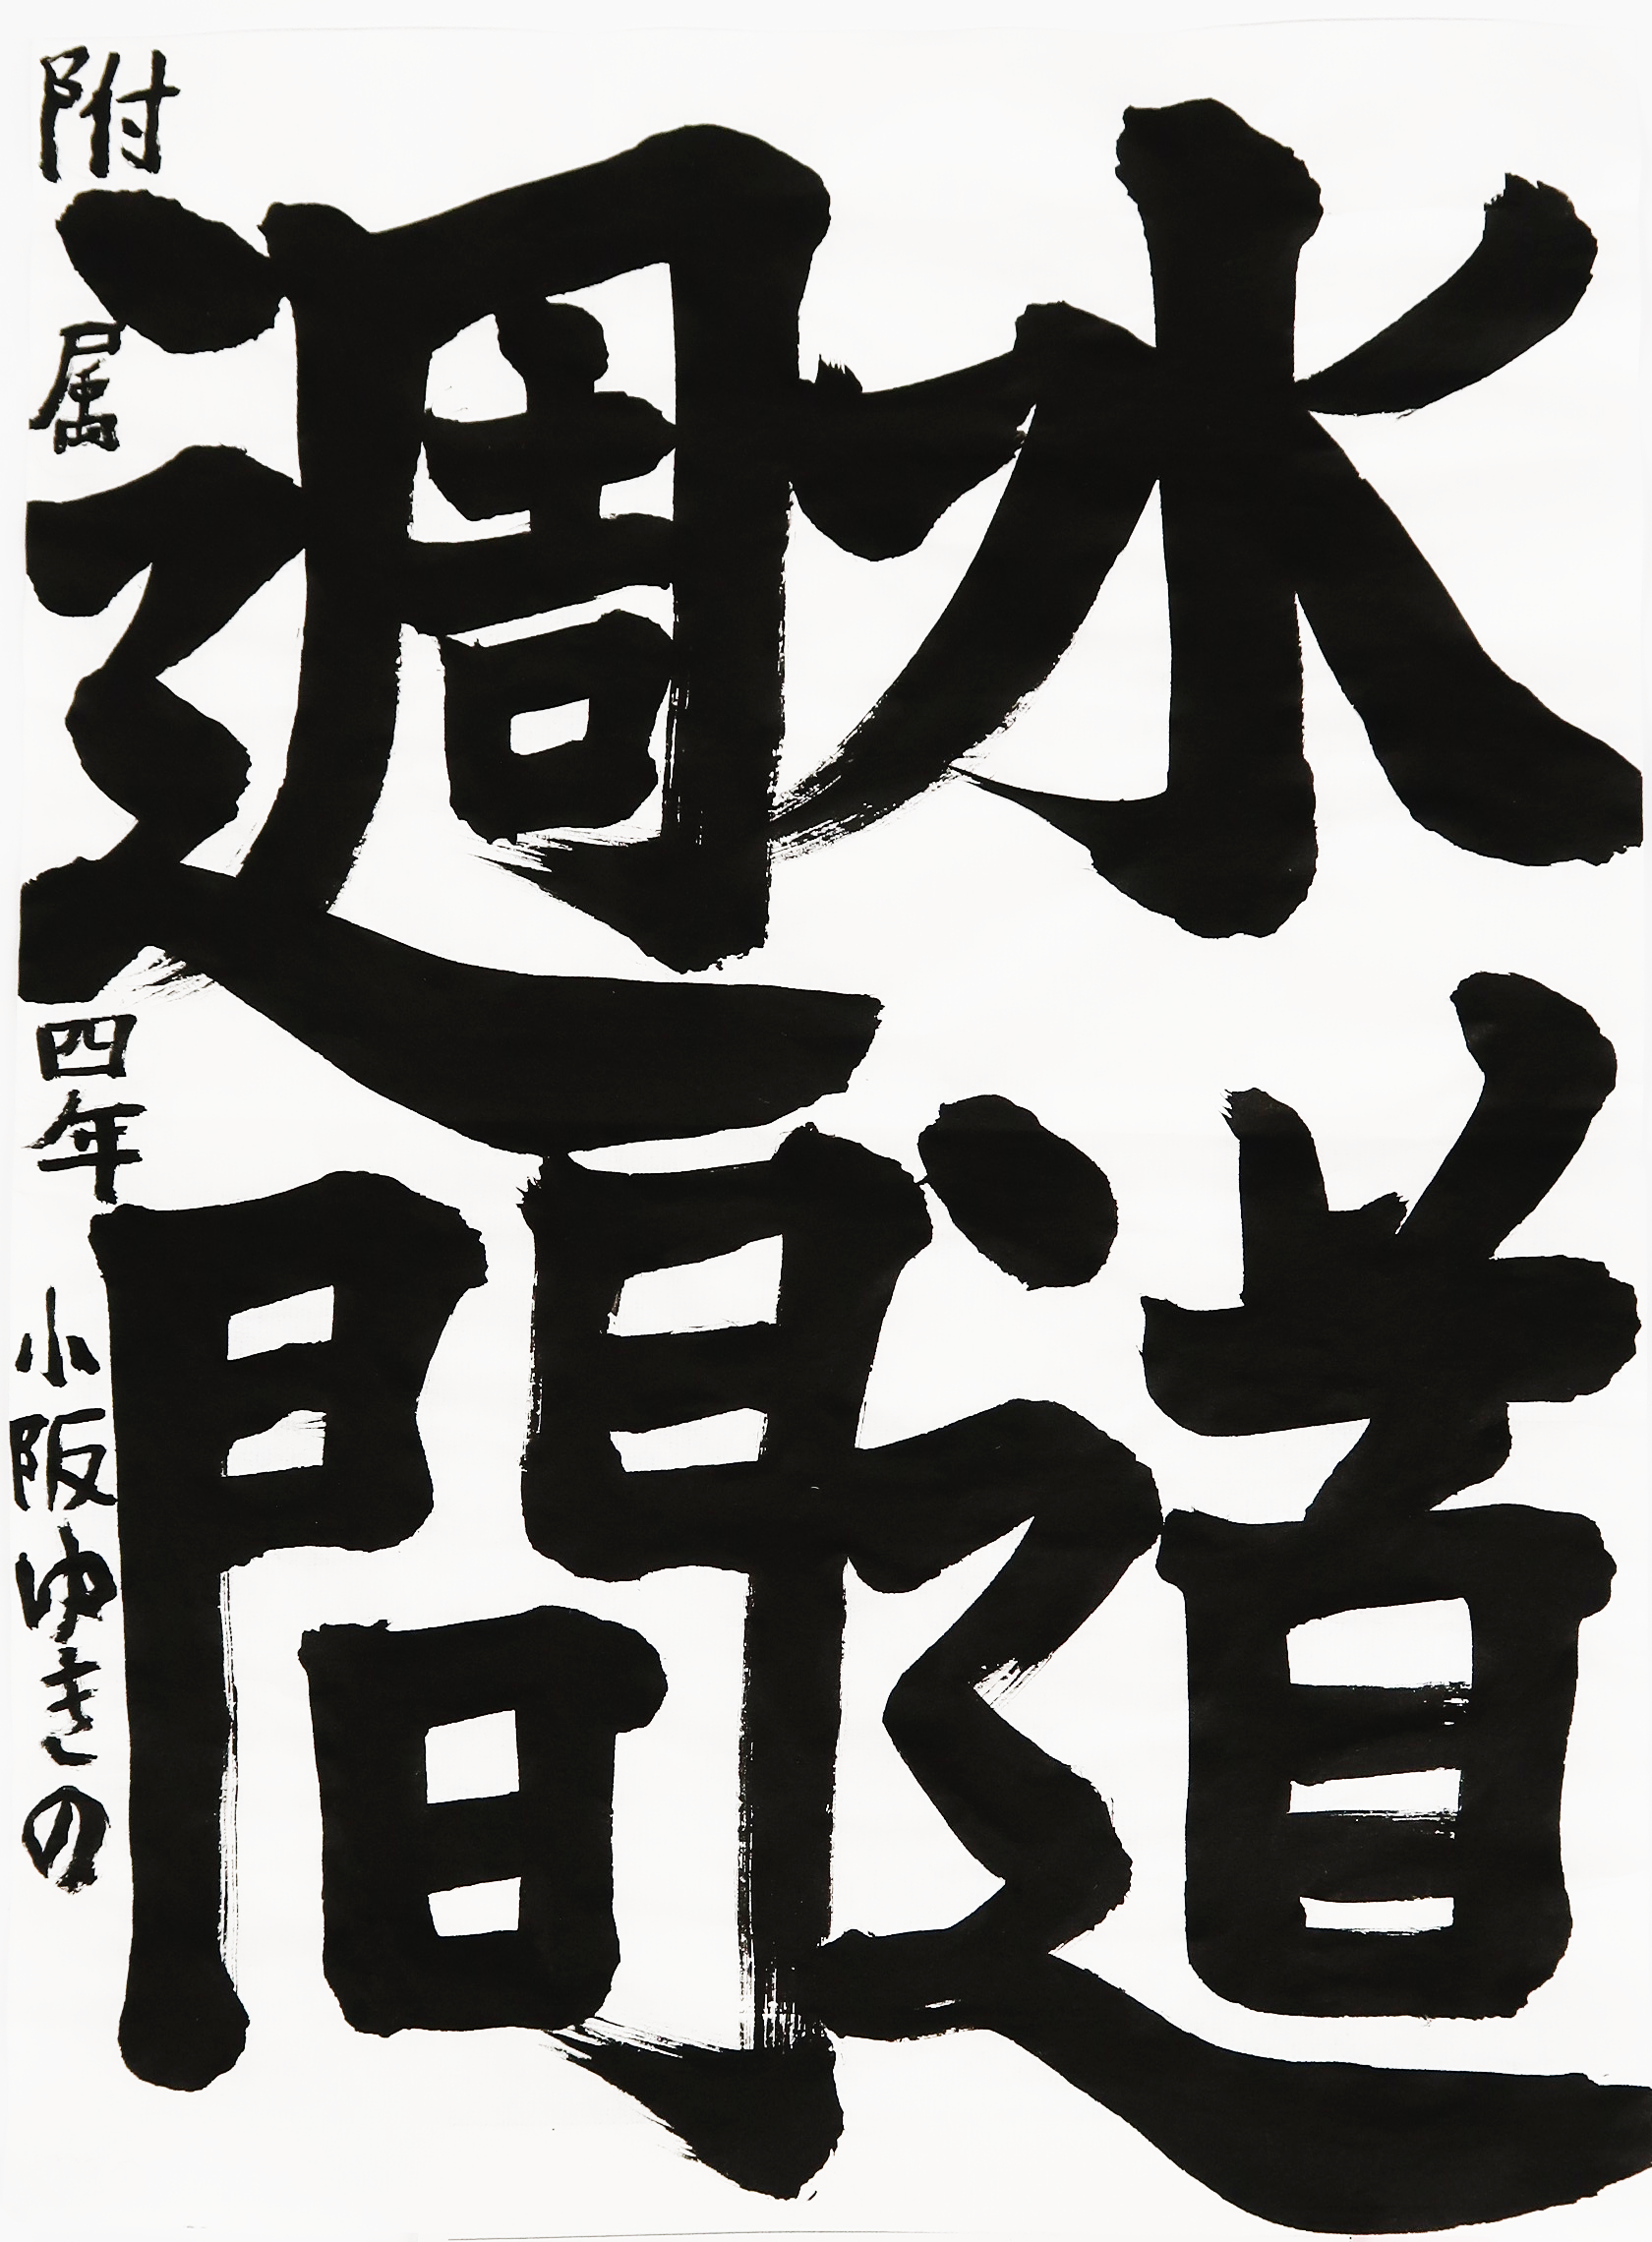 水道
週間
附属 四年 小阪ゆきの